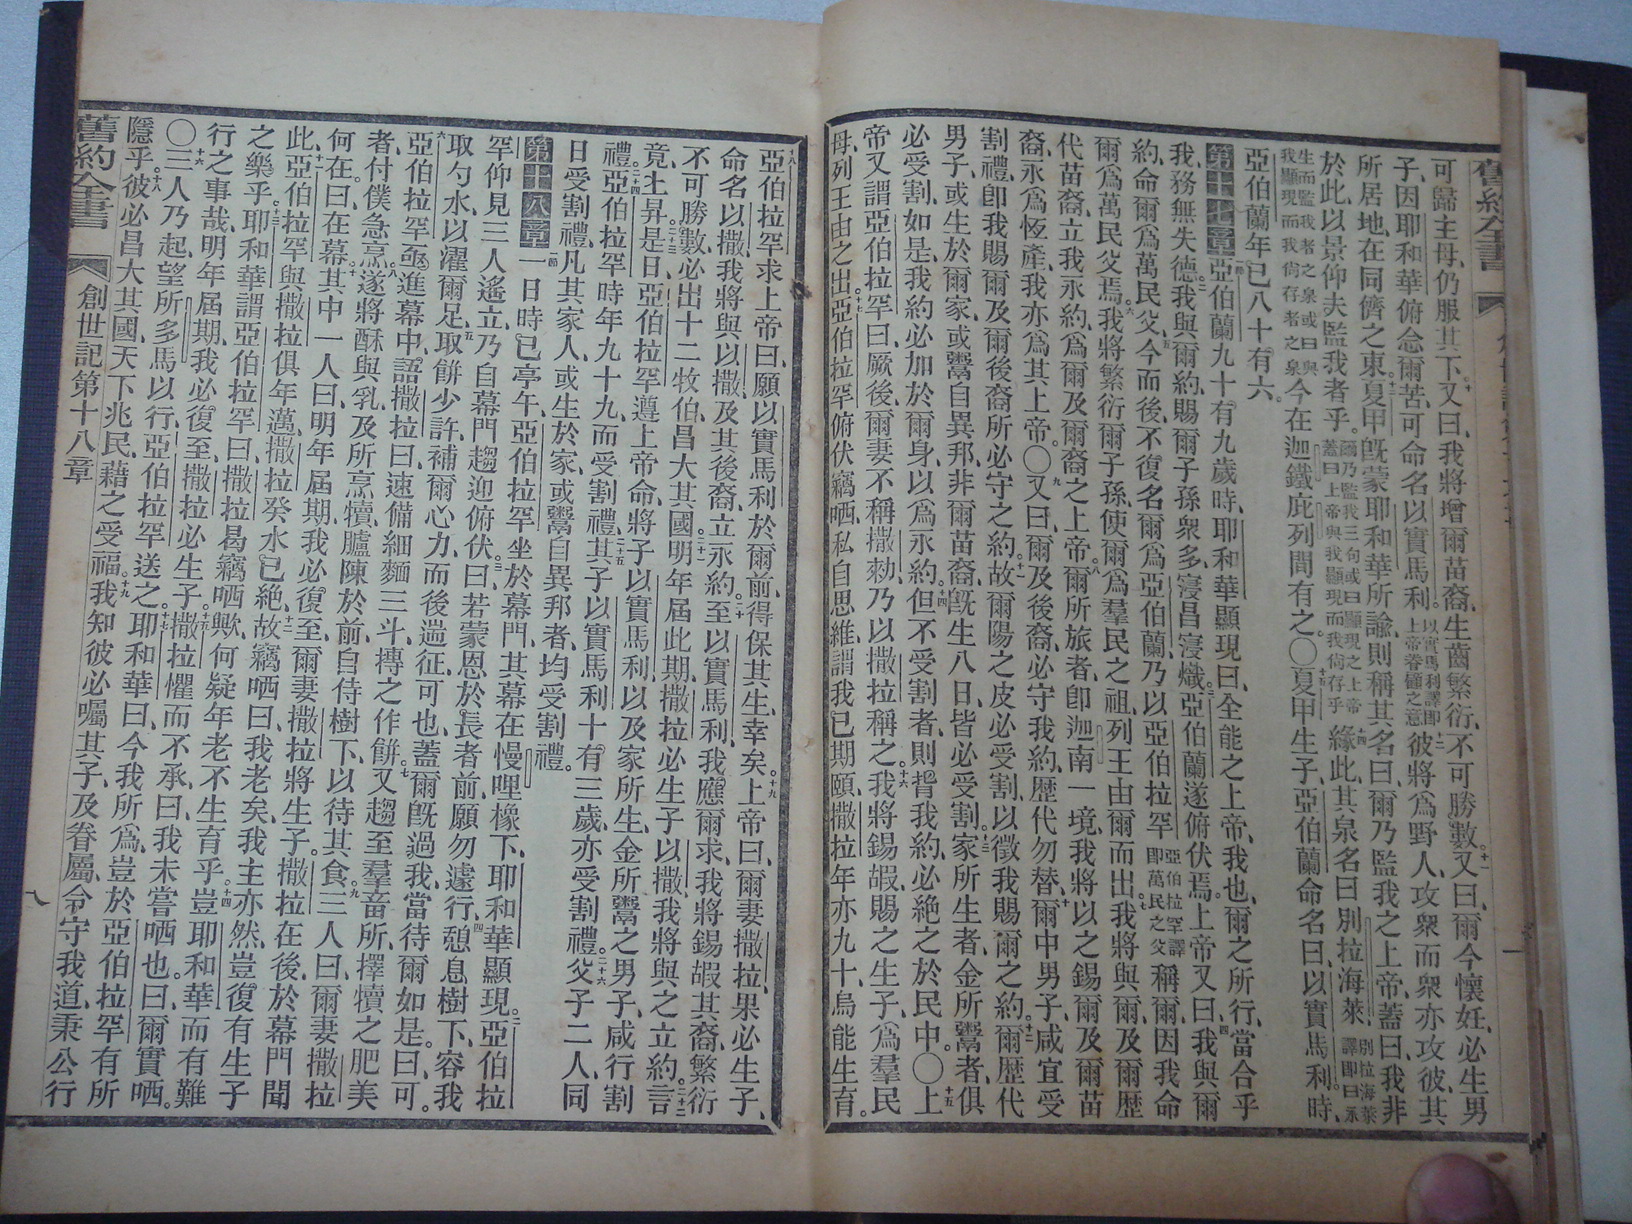 舊約全書
可歸主母、仍服其下、又曰、我將增爾苗裔、生齒繁衍、不可勝數、又曰、爾今懷妊、必生男
子、因耶和華俯念爾苦、可命名以實馬利。以實馬利譯即上帝眷顧之意彼將爲野人、攻衆而衆亦攻彼、其
所居地、在同儕之東、夏甲旣蒙耶和華所諭、則稱其名曰、爾乃監我之上帝、蓋曰、我非
於此、以景仰夫監我者乎。爾乃監我三句或曰顯現之上帝蓋曰上帝與我顯現而我尙存乎緣此、其泉名曰別拉海萊、別拉海萊譯即曰永
生而監我者之泉或曰與我顯現而我尙存者之泉今在迦鐵庇列間有之、〇夏甲生子、亞伯蘭命名曰、以實馬利、時、
亞伯蘭年已八十有六。
第十七章亞伯蘭九十有九歲時、耶和華顯現曰、全能之上帝、我也、爾之所行、當合乎
我、務無失德、我與爾約、賜爾子孫衆多、寖昌寖熾、亞伯蘭遂俯伏焉。上帝又曰、我與爾
約、命爾爲萬民父、今而後、不復名爾爲亞伯蘭、乃以亞伯拉罕亞伯拉罕譯即萬民之父稱爾、因我命
爾爲萬民父焉、我將繁衍爾子孫、使爾爲羣民之祖、列王由爾而出、我將與爾、及爾歷
代苗裔、立我永約、爲爾及爾裔之上帝。爾所旅者、卽迦南一境、我將以之錫爾及爾苗
裔、永爲恆產、我亦爲其上帝。〇又曰、爾及後裔、必守我約、歷代勿替、爾中男子、咸宜受
割禮、卽我賜爾及爾後裔所必守之約、故爾陽之皮必受割、以徵我賜爾之約。爾歷代
男子、或生於爾家、或鬻自異邦、非爾苗裔、旣生八日、皆必受割、家所生者、金所鬻者、俱
必受割、如是、我約必加於爾身、以爲永約、但不受割者、則背我約、必絕之於民中。〇上
帝又謂亞伯拉罕曰、厥後、爾妻不稱撒勑、乃以撒拉稱之、我將錫嘏、賜之生子、爲羣民
母、列王由之出。亞伯拉罕俯伏竊哂、私自思維、謂我已期頤、撒拉年亦九十、烏能生育。
亞伯拉罕求上帝曰、願以實馬利於爾前、得保其生、幸矣。上帝曰、爾妻撒拉、果必生子、
命名以撒、我將與以撒、及其後裔、立永約。至以實馬利、我應爾求、我將錫嘏其裔、繁衍
不可勝數、必出十二牧伯、昌大其國、明年屆此期、撒拉必生子以撒、我將與之立約。言
竟、上昇、是日、亞伯拉罕遵上帝命、將子以實馬利、以及家所生、金所鬻之男子、咸行割
禮。亞伯拉罕時年九十九、而受割禮、其子以實馬利十有三歲、亦受割禮、父子二人、同
日受割禮、凡其家人、或生於家、或鬻自異邦者、均受割禮。
第十八章一日時、已亭午、亞伯拉罕坐於幕門、其幕在慢哩橡下、耶和華顯現。亞伯拉
罕仰見三人遙立、乃自幕門趨迎俯伏、曰、若蒙恩於長者前、願勿遽行、憩息樹下、容我
取勺水、以濯爾足、取餅少許、補爾心力、而後遄征可也、蓋爾旣過我、當待爾如是。曰可。
亞伯拉罕亟進幕中、語撒拉曰、速備細麵三斗、摶之作餅、又趨至羣畜所、擇犢之肥美
者、付僕急烹、遂將酥與乳、及所烹犢、臚陳於前、自侍樹下、以待其食、三人曰、爾妻撒拉
何在。曰在幕。其中一人曰、明年屆期、我必復至、爾妻撒拉將生子。撒拉在後、於幕門聞
此、亞伯拉罕與撒拉俱年邁、撒拉癸水已絕、故竊哂曰、我老矣、我主亦然、豈復有生子
之樂乎。耶和華謂亞伯拉罕曰、撒拉曷竊哂歟、何疑年老不生育乎。豈耶和華而有難
行之事哉、明年屆期、我必復至、撒拉必生子、撒拉懼而不承、曰、我未嘗哂也。曰、爾實哂。
〇三人乃起、望所多馬以行、亞伯拉罕送之、耶和華曰、今我所爲、豈於亞伯拉罕有所
隱乎。彼必昌大其國、天下兆民、藉之受福。我知彼必囑其子、及眷屬、令守我道、秉公行
舊約全書　創世記第十八章　八